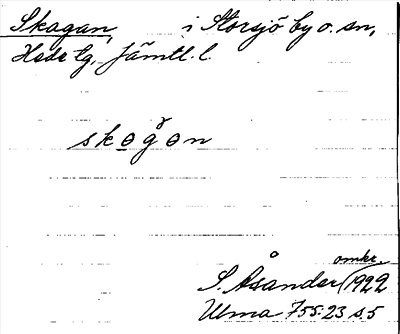 Skagan, i Storsjö by o. sn,
Hede tg, Jämtl. l.
skøgøn
omkr.
S. Åsander 1922
Ulma 755:23 s. 5